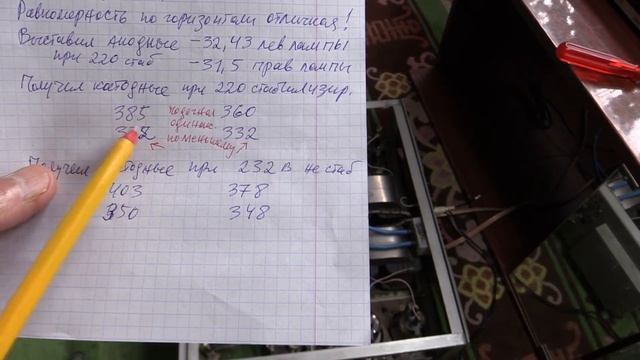 Равномерность по горизонтали отличная!
Выставил Анодные -32,43 лев лампы
при 220 стаб -31,5 прав лампы
Получил катодные при 220 стабилизир.
385 360
332
по меньшему
при 232 В не стаб
403 378
350 348